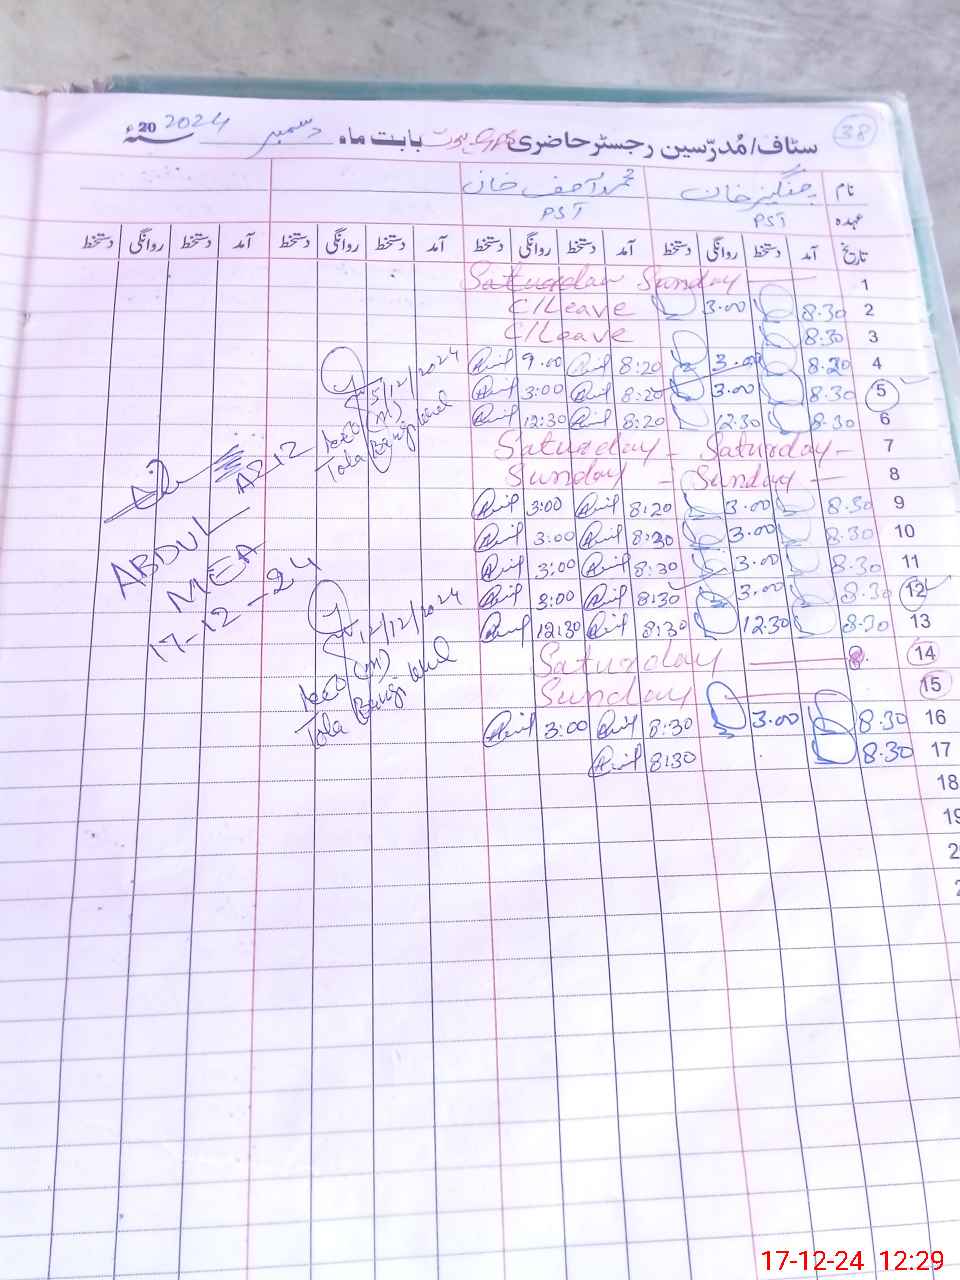 38
سٹاف/مُدرّسین رجسٹر حاضری GPS بابت ماہ دسمبر 2024 سنۂ
نام چنگیز خان محمد آصف خان
عہدہ PST PST
تاریخ آمد دستخط روانگی دستخط آمد دستخط روانگی دستخط آمد دستخط روانگی دستخط آمد دستخط روانگی دستخط
1 Saturday Sunday
2 8.30 3.00 C/Leave
3 8.30 C/Leave
4 8.20 3.00 8:20 9.00
5 8.30 3.00 8:20 3:00
6 8.30 12.30 8:20 12:30
7 Saturday - Saturday -
8 Sunday - Sunday -
9 8.30 3.00 8:20 3:00
10 8.30 3.00 8:30 3:00
11 8.30 3.00 8:30 3:00
12 8.30 3.00 8:30 3:00
13 8.30 12.30 8:30 12:30
14 Saturday
15 Sunday
16 8.30 3.00 8:30 3:00
17 8.30 8:30
18
19
5/12/2024
(M)
Tola Bangi Khel
ABDUL
MEA
17-12-24
12/12/2024
(M)
Tola Bangi Khel
17-12-24 12:29